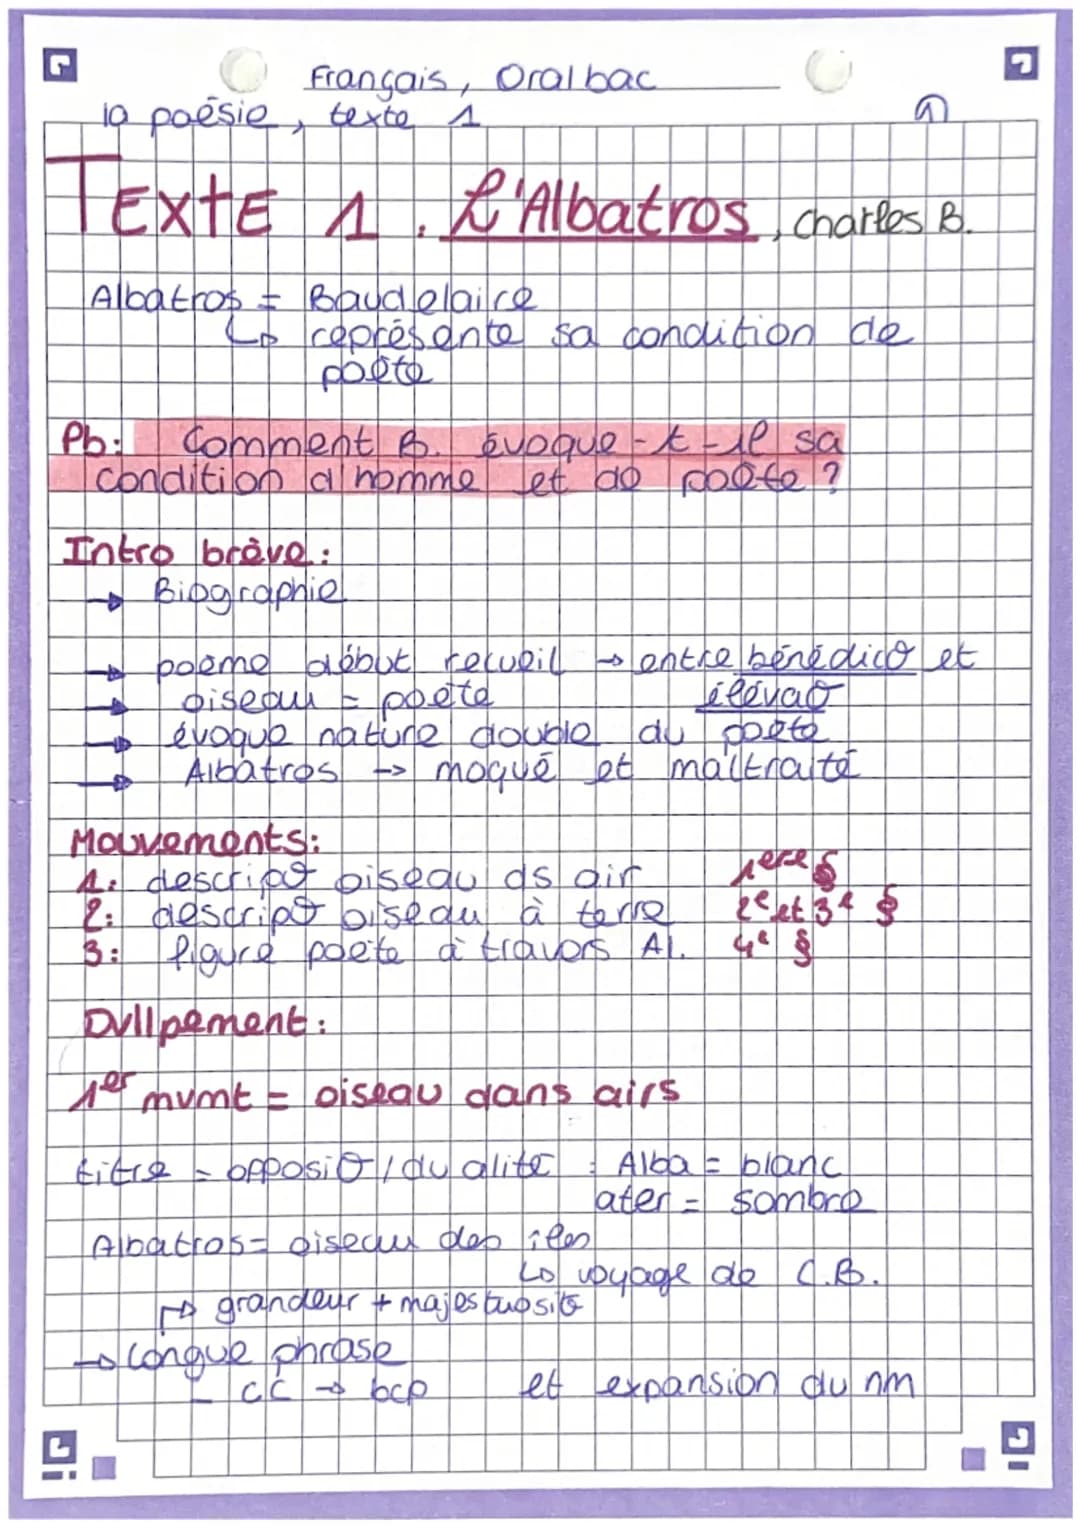 Français, Oral bac
la poésie, texte 1
1
TEXTE 1. L'Albatros, Charles B.
Albatros = Baudelaire
↳ représente sa condition de
poète
Pb: Comment B. évoque-t-il sa
condition d'homme et de poète ?
Intro brève :
→ Biographie
→ poème début recueil → entre bénédicto et
élévato
→ oiseau = poète
→ évoque nature double du poète
→ Albatros -> moqué et maltraité
Mouvements:
1: descripto oiseau ds air 1ere §
2: descripto oiseau à terre 2e et 3e §
3: figure poète à travers Al. 4e §
Dvllpement :
1er mvmt = oiseau dans airs
titre = opposito / dualité : Alba = blanc
ater = sombre
Albatros = oiseau des îles
↳ voyage de C.B.
↱ grandeur + majestuosité
→ longue phrase
- CC → bcp et expansion du nm